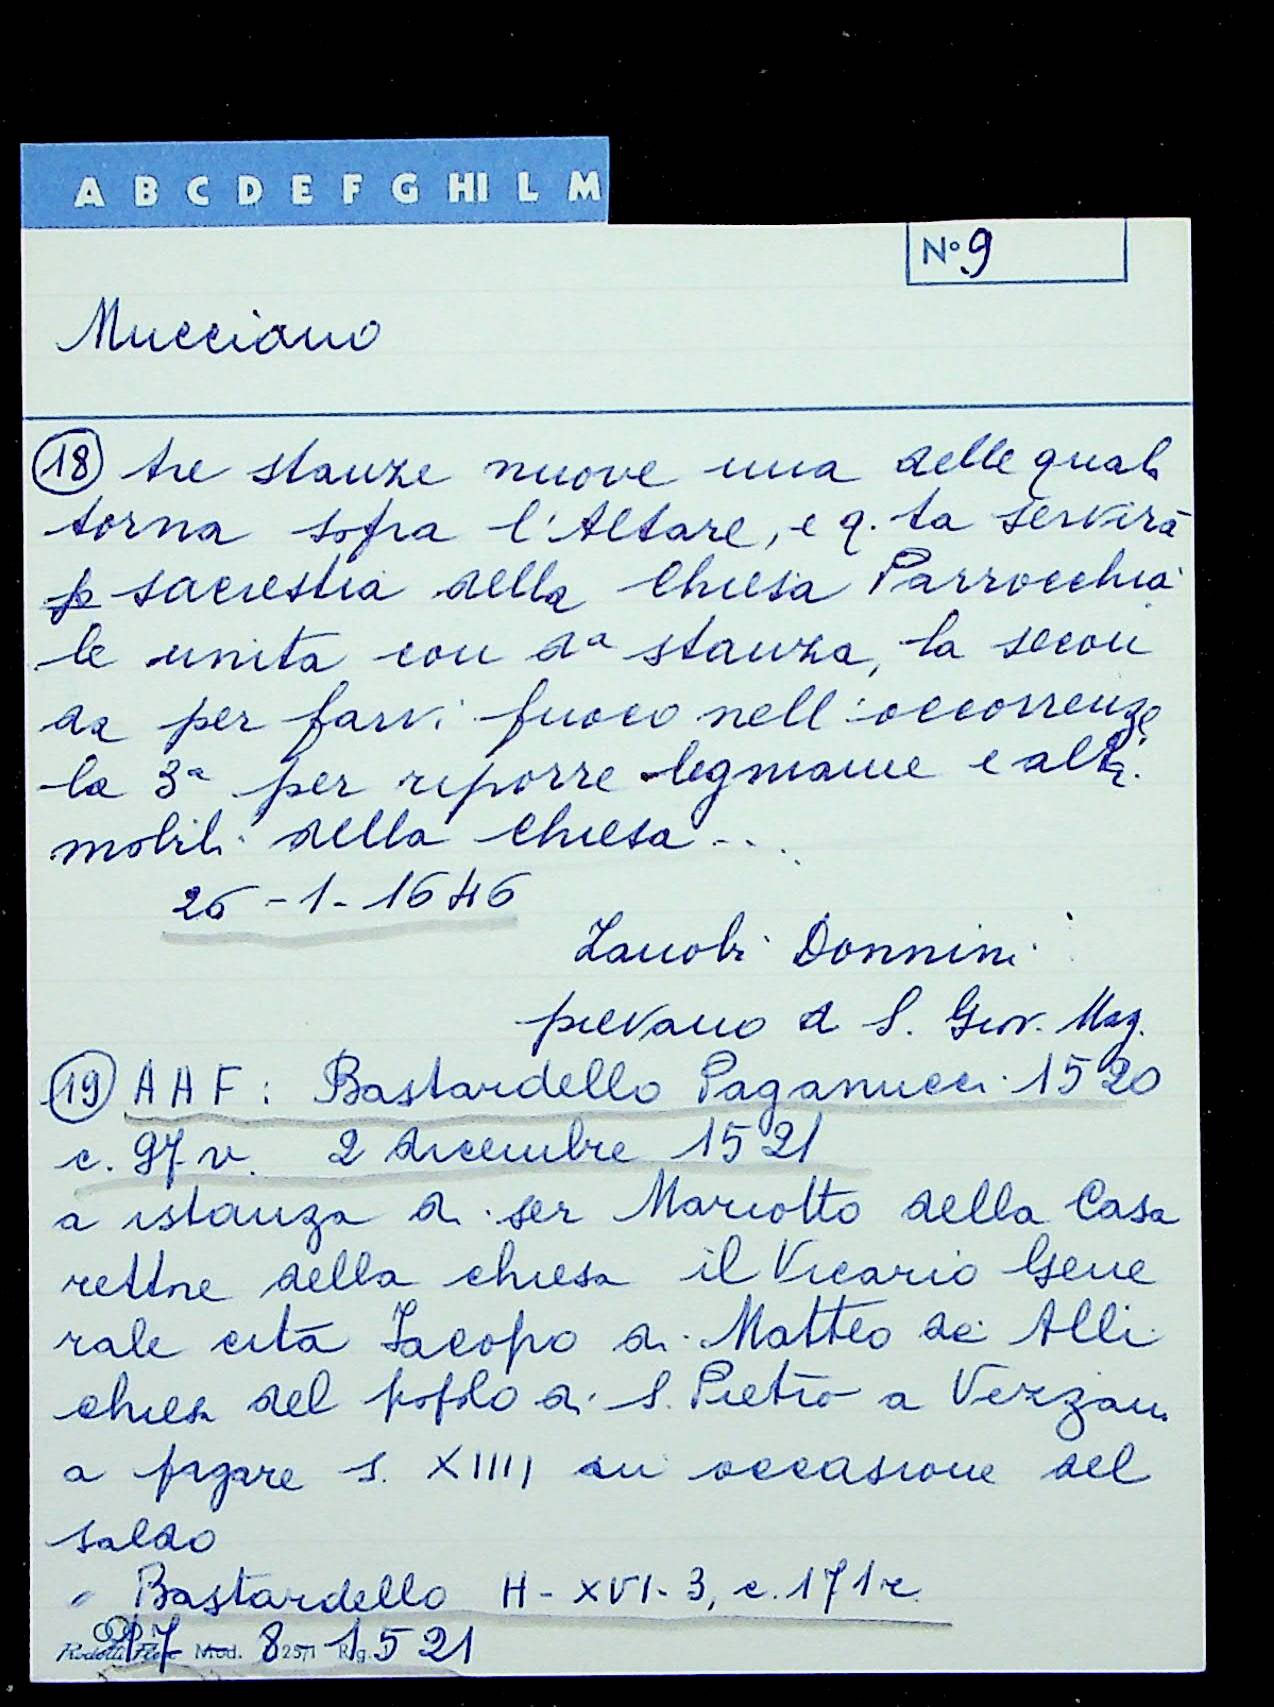 A B C D E F G HI L M
N° 9
Mucciano
18 tre stanze nuove una delle quali
torna sopra l'Altare, e q.ta servirà
p sacrestia della Chiesa Parrocchia
le unita con d.a stanza, la secon
da per farvi fuoco nell'occorrenze
la 3a per riporre legniame e altri
mobili della Chiesa ...
26-1-1646
Zanobi Donnini
pievano a S. Giov. Mag.
19 AAF: Bastardello Paganucci 1520
c. 97 v. 2 dicembre 1521
a istanza di ser Mariotto della Casa
rettore della chiesa il Vicario Gene
rale cita Iacopo di Matteo de' Alli
chiesa del popolo di S. Pietro a Vezzani
a pagare s. XIIII in occasione del
saldo
" Bastardello H-XVI-3, c. 171r
17-8-1521
Mod. 825/1 Rig.